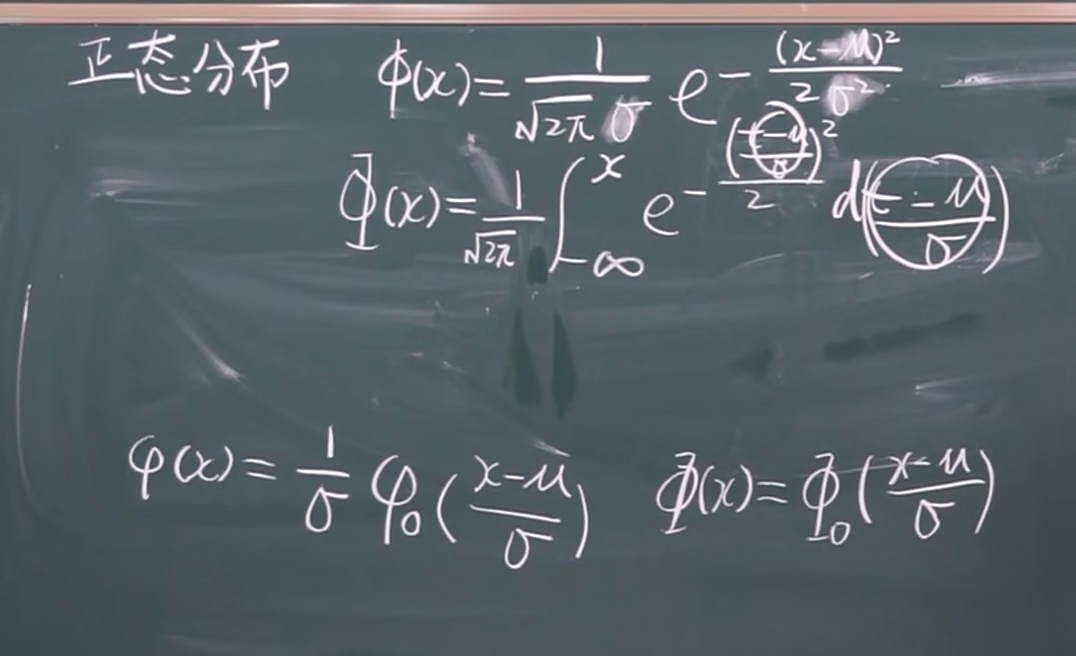 正态分布 ϕ(x)=\frac{1}{\sqrt{2π}σ} e^{-\frac{(x-μ)²}{2σ²}}
Φ(x)=\frac{1}{\sqrt{2π}} ∫_{-∞}^{x} e^{-\frac{(\frac{t-μ}{σ})²}{2}} d(\frac{t-μ}{σ})
φ(x)=\frac{1}{σ} φ₀(\frac{x-μ}{σ}) Φ(x)=Φ₀(\frac{x-μ}{σ})